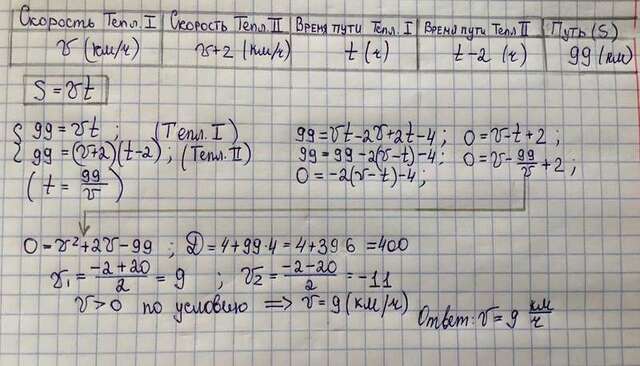 Скорость Тепл. I | Скорость Тепл. II | Время пути Тепл. I | Время пути Тепл II | Путь (S)
v (км/ч) | v+2 (км/ч) | t (ч) | t-2 (ч) | 99 (км)
S = vt
{ 99 = vt ; (Тепл. I)
{ 99 = (v+2)(t-2) ; (Тепл. II)
( t = 99/v )
99 = vt-2v+2t-4 ; 0 = v-t+2 ;
99 = 99-2(v-t)-4 ; 0 = v - 99/v + 2 ;
0 = -2(v-t)-4 ;
0 = v²+2v-99 ; D = 4+99·4 = 4+396 = 400
v₁ = (-2+20)/2 = 9 ; v₂ = (-2-20)/2 = -11
v>0 по условию ⟹ v = 9 (км/ч)
Ответ: v = 9 км/ч